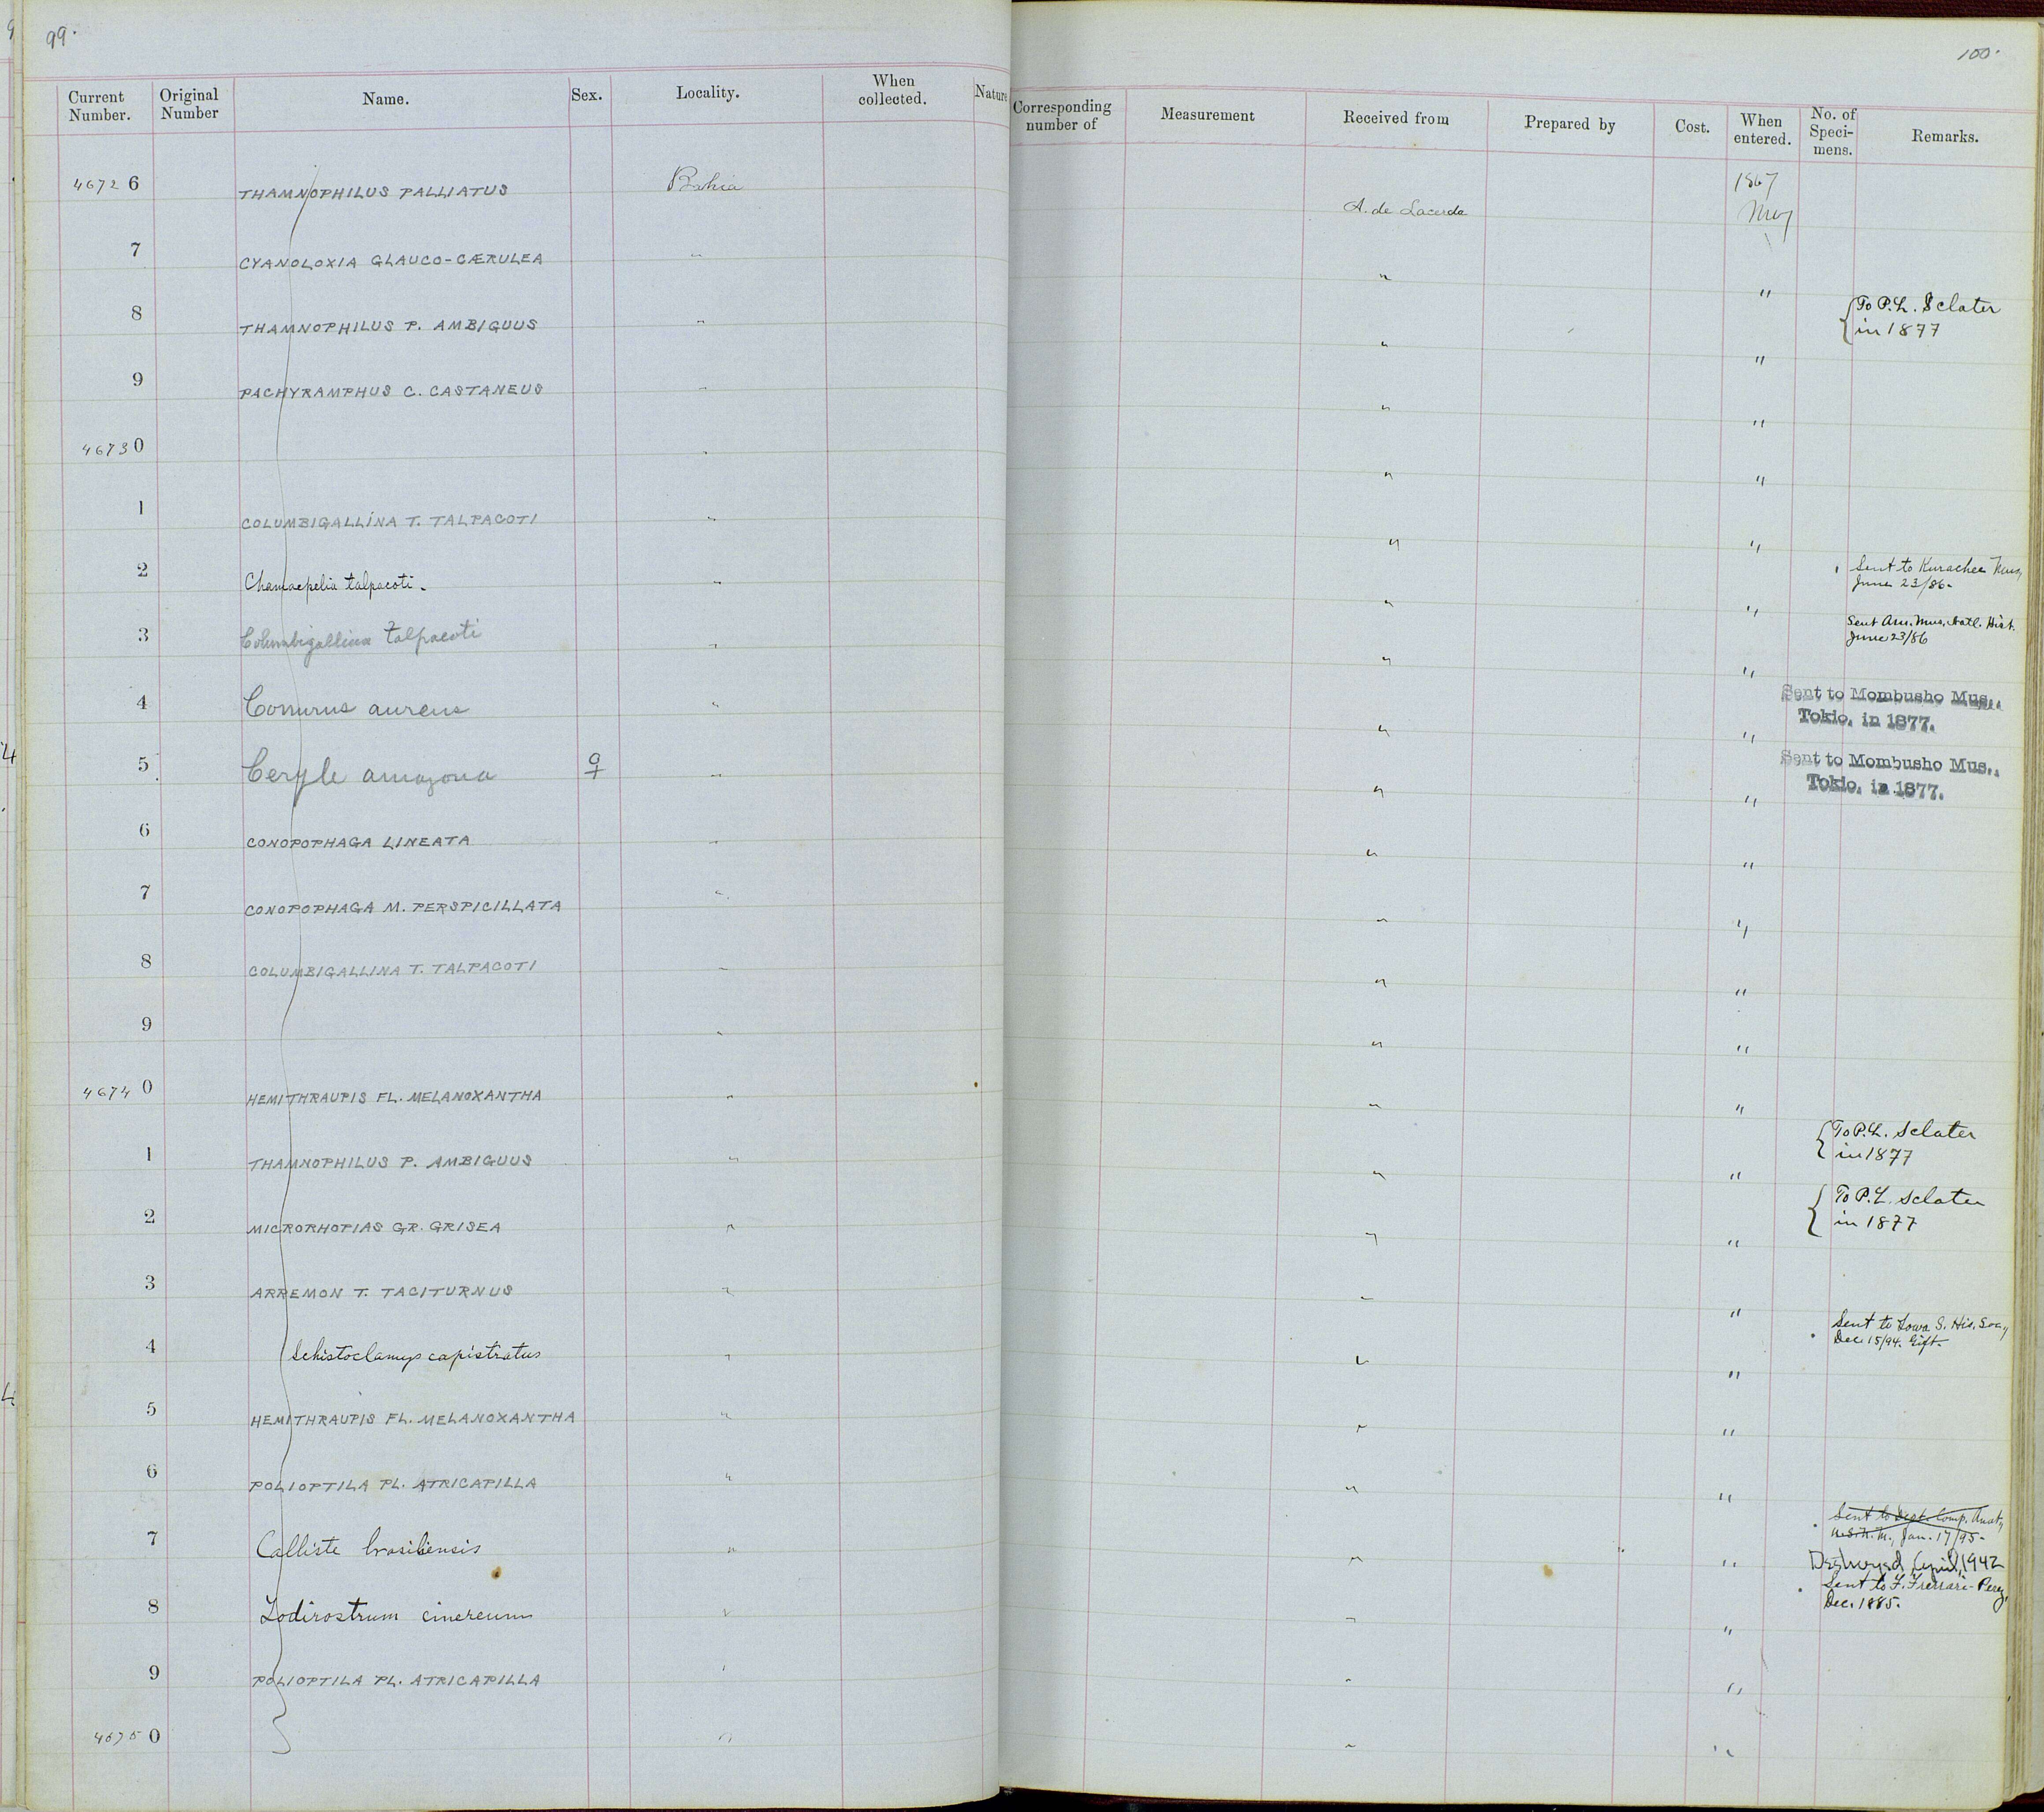 99.
100.
Current Number. Original Number Name. Sex. Locality. When collected. Nature Corresponding number of Measurement Received from Prepared by Cost. When entered. No. of Speci-mens. Remarks.
46726 THAMNOPHILUS PALLIATUS Bahia A. de Lacerda 1867 May
7 CYANOLOXIA GLAUCO-CÆRULEA " " "
8 THAMNOPHILUS P. AMBIGUUS " " " { To P.L. Sclater
in 1877
9 PACHYRAMPHUS C. CASTANEUS " " "
46730 " " "
1 COLUMBIGALLINA T. TALPACOTI " " "
2 Chamaepelia talpacoti. " " " Sent to Kurachee Mus,
June 23/86.
3 Columbigallina talpacoti " " " Sent Am. Mus. Natl. Hist.
June 23/86
4 Conurus aureus " " " Sent to Mombusho Mus.,
Tokio, in 1877.
5 Ceryle amazona ♀ " " " Sent to Mombusho Mus.,
Tokio, in 1877.
6 CONOPOPHAGA LINEATA " " "
7 CONOPOPHAGA M. PERSPICILLATA " " "
8 COLUMBIGALLINA T. TALPACOTI " " "
9 " " "
46740 HEMITHRAUPIS FL. MELANOXANTHA " " "
1 THAMNOPHILUS P. AMBIGUUS " " " { To P.L. Sclater
in 1877
2 MICRORHOPIAS GR. GRISEA " " " { To P.L. Sclater
in 1877
3 ARREMON T. TACITURNUS " " "
4 Schistoclamys capistratus " " " Sent to Iowa S. His. Soc,
Dec. 15/94. Gift.
5 HEMITHRAUPIS FL. MELANOXANTHA " " "
6 POLIOPTILA PL. ATRICAPILLA " " "
7 Calliste brasiliensis " " " Sent to Dept. Comp. Anat,
U.S.N.M., Jan. 17/95.
Destroyed April, 1942
8 Todirostrum cinereum " " " Sent to F. Ferrari-Perez,
Dec. 1885.
9 POLIOPTILA PL. ATRICAPILLA " " "
46750 " " "